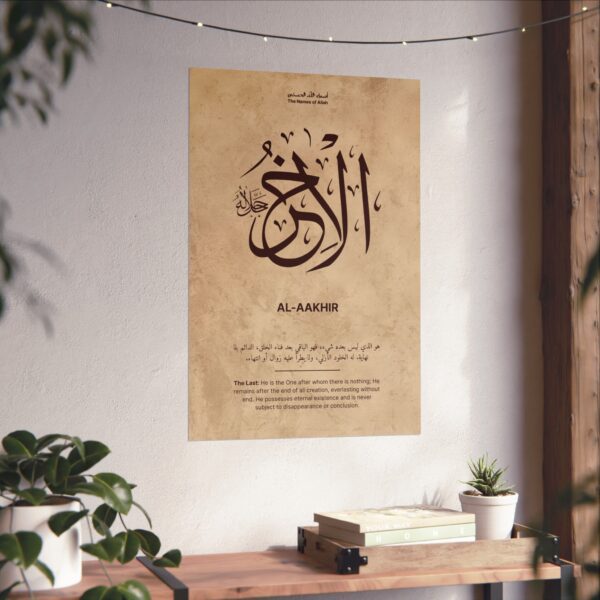 أسماء الله الحسنى
The Names of Allah
الآخر
جل جلاله
AL-AAKHIR
هو الذي ليس بعده شيء، فهو الباقي بعد فناء الخلق، الدائم بلا
نهاية، له الخلود الأزلي، ولا يطرأ عليه زوال أو انتهاء.
The Last: He is the One after whom there is nothing; He
remains after the end of all creation, everlasting without
end. He possesses eternal existence and is never
subject to disappearance or conclusion.